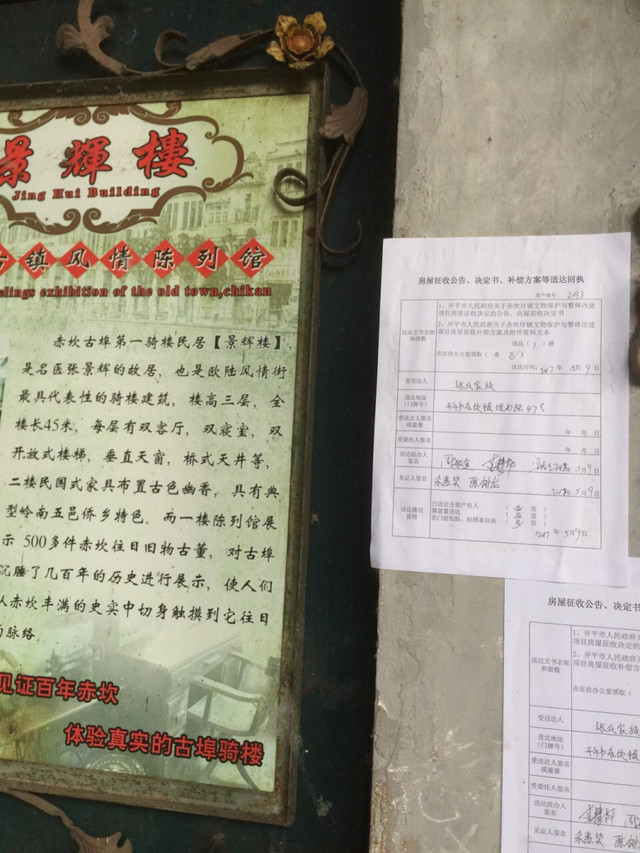 景輝樓
Jing Hui Building
古镇风情陈列馆
exhibition of the old town,chikan
赤坎古埠第一骑楼民居【景辉楼】,
是名医张景辉的故居,也是欧陆风情街
最具代表性的骑楼建筑,楼高三层,全
楼长45米,每层有双客厅,双寝室,双
开放式楼梯,垂直天窗,桥式天井等,
二楼民国式家具布置古色幽香,具有典
型岭南五邑侨乡特色。而一楼陈列馆展
示500多件赤坎往日旧物古董,对古埠
沉睡了几百年的历史进行展示,使人们
从赤坎丰满的史实中切身触摸到它往日
的脉络。
见证百年赤坎
体验真实的古埠骑楼
房屋征收公告、决定书、补偿方案等送达回执
房产编号:
送达文书名称和册数
1、开平市人民政府关于赤坎圩镇文物保护与整体改造
项目房屋征收决定的公告、房屋征收决定书
2、开平市人民政府关于赤坎圩镇文物保护与整体改造
项目房屋征收补偿方案及附件资料文本
送达(1)册
在征收办公室领取(
送达时间:2017年5月9日
受送达人
张氏家族
送达地址
(门牌号)
开平市赤坎镇 47号
受送达人签名
或盖章
年 月 日
受委托人签名
年 月 日
送达经办人
签名
5月9日
见证人签名
5月9日
送达情况
说明
已送达全部产权人
属留置送达
在门前张贴、拒绝来回执
2017年5月9日
房屋征收公告、决定书
送达文书名称
和册数
1、开平市人民政府关
项目房屋征收决定的
2、开平市人民政府关
项目房屋征收补偿方
在征收办公室领取(
受送达人
张氏家族
送达地址
(门牌号)
开平市赤坎镇
受送达人签名
或盖章
受委托人签名
送达经办人
签名
见证人签名